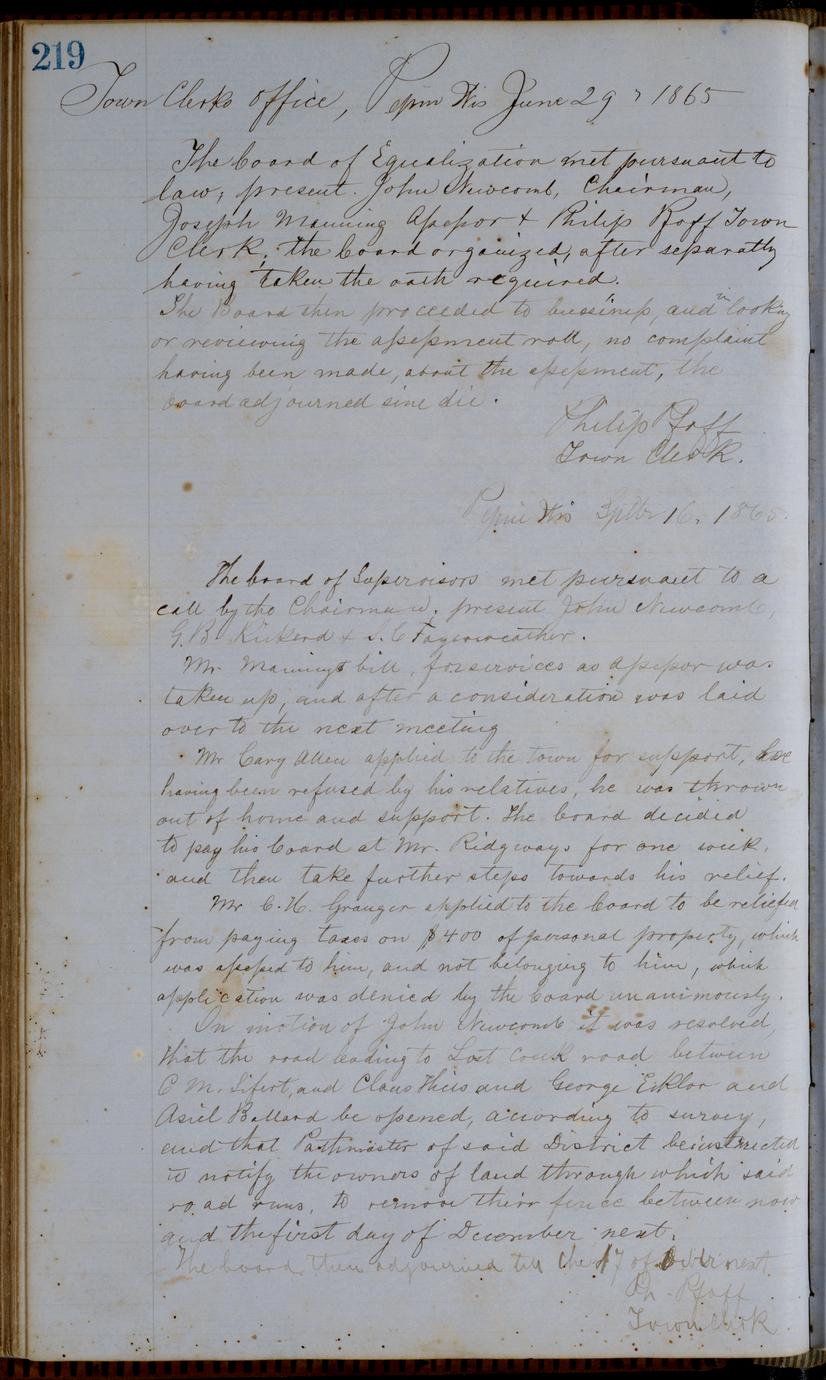 219
Town Clerks Office, Pepin Wis June 29, 1865
The board of Equalization met pursuant to
law, present. John Newcomb, Chairman,
Joseph Manning Assessor & Philip Pfaff Town
Clerk, the board organized, after separatly
having taken the oath required.
The Board then proceeded to bussiness, and in looking
or reviewing the assessment roll, no complaint
having been made, about the assessment, the
board adjourned sine die.
Philip Pfaff
Town Clerk.
Pepin Wis Sptbr 16, 1865.
The board of Supervisors met pursuant to a
call by the Chairman. present John Newcomb,
G.B. Rickerd & S. C Fayerweather.
Mr. Mannings bill, for services as assessor was
taken up, and after a consideration was laid
over to the next meeting
Mr Cary Allen applied to the town for support,
having been refused by his relatives, he was thrown
out of home and support. The board decided
to pay his board at Mr. Ridgways for one week,
and then take further steps towards his relief.
Mr C. H. Granger applied to the board to be reliefed
from paying taxes on $400 of personal property, which
was assessed to him, and not belonging to him, which
application was denied by the board unanimously.
On motion of John Newcomb it was resolved,
that the road leading to Lost Creek road between
C. M. Sifert, and Claus Thies and George Ecklor and
Asiel Ballard be opened, according to survey,
and that Pathmaster of said District be instructed
to notify the owners of land through which said
road runs, to remove their fence between now
and the first day of December next.
The board then adjourned till the 17 of Octbr next
Ph. Pfaff
Town Clerk